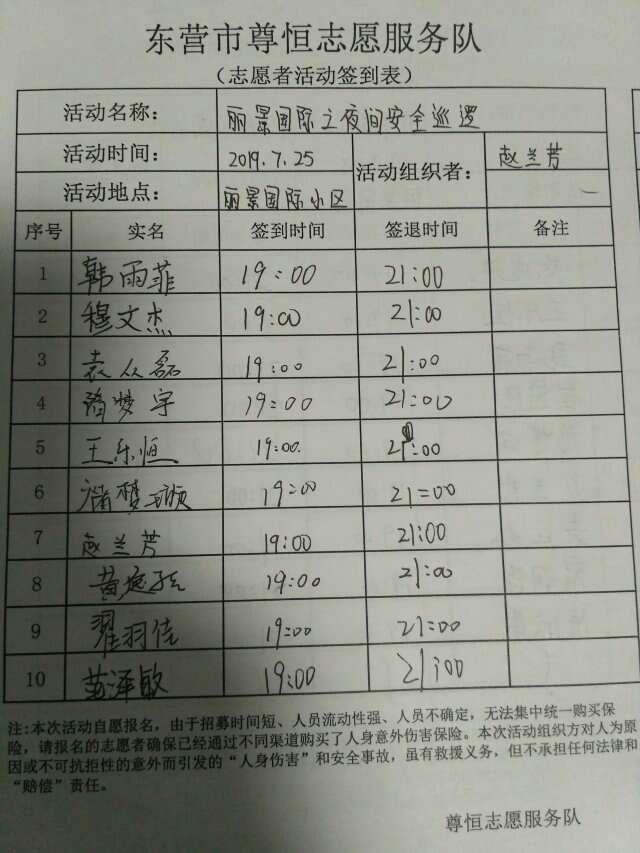 东营市尊恒志愿服务队
（志愿者活动签到表）
活动名称： 丽景国际之夜间安全巡逻
活动时间： 2019.7.25 活动组织者： 赵兰芳
活动地点： 丽景国际小区
序号 实名 签到时间 签退时间 备注
1 韩雨菲 19:00 21:00
2 穆文杰 19:00 21:00
3 袁众磊 19:00 21:00
4 隋梦宇 19:00 21:00
5 王乐恒 19:00. 21:00
6 褚梦璇 19:00 21:00
7 赵兰芳 19:00 21:00
8 19:00 21:00
9 翟羽佳 19:00 21:00
10 黄泽敏 19:00 21:00
注:本次活动自愿报名，由于招募时间短、人员流动性强、人员不确定，无法集中统一购买保
险，请报名的志愿者确保已经通过不同渠道购买了人身意外伤害保险。本次活动组织方对人为原
因或不可抗拒性的意外而引发的“人身伤害”和安全事故，虽有救援义务，但不承担任何法律和
“赔偿”责任。
尊恒志愿服务队